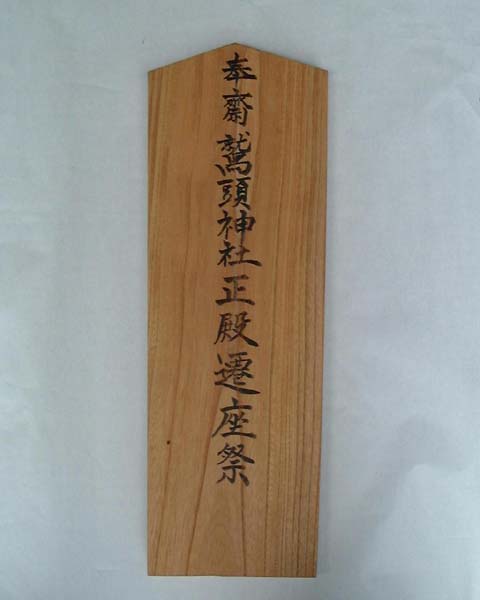 奉齋鷲頭神社正殿遷座祭